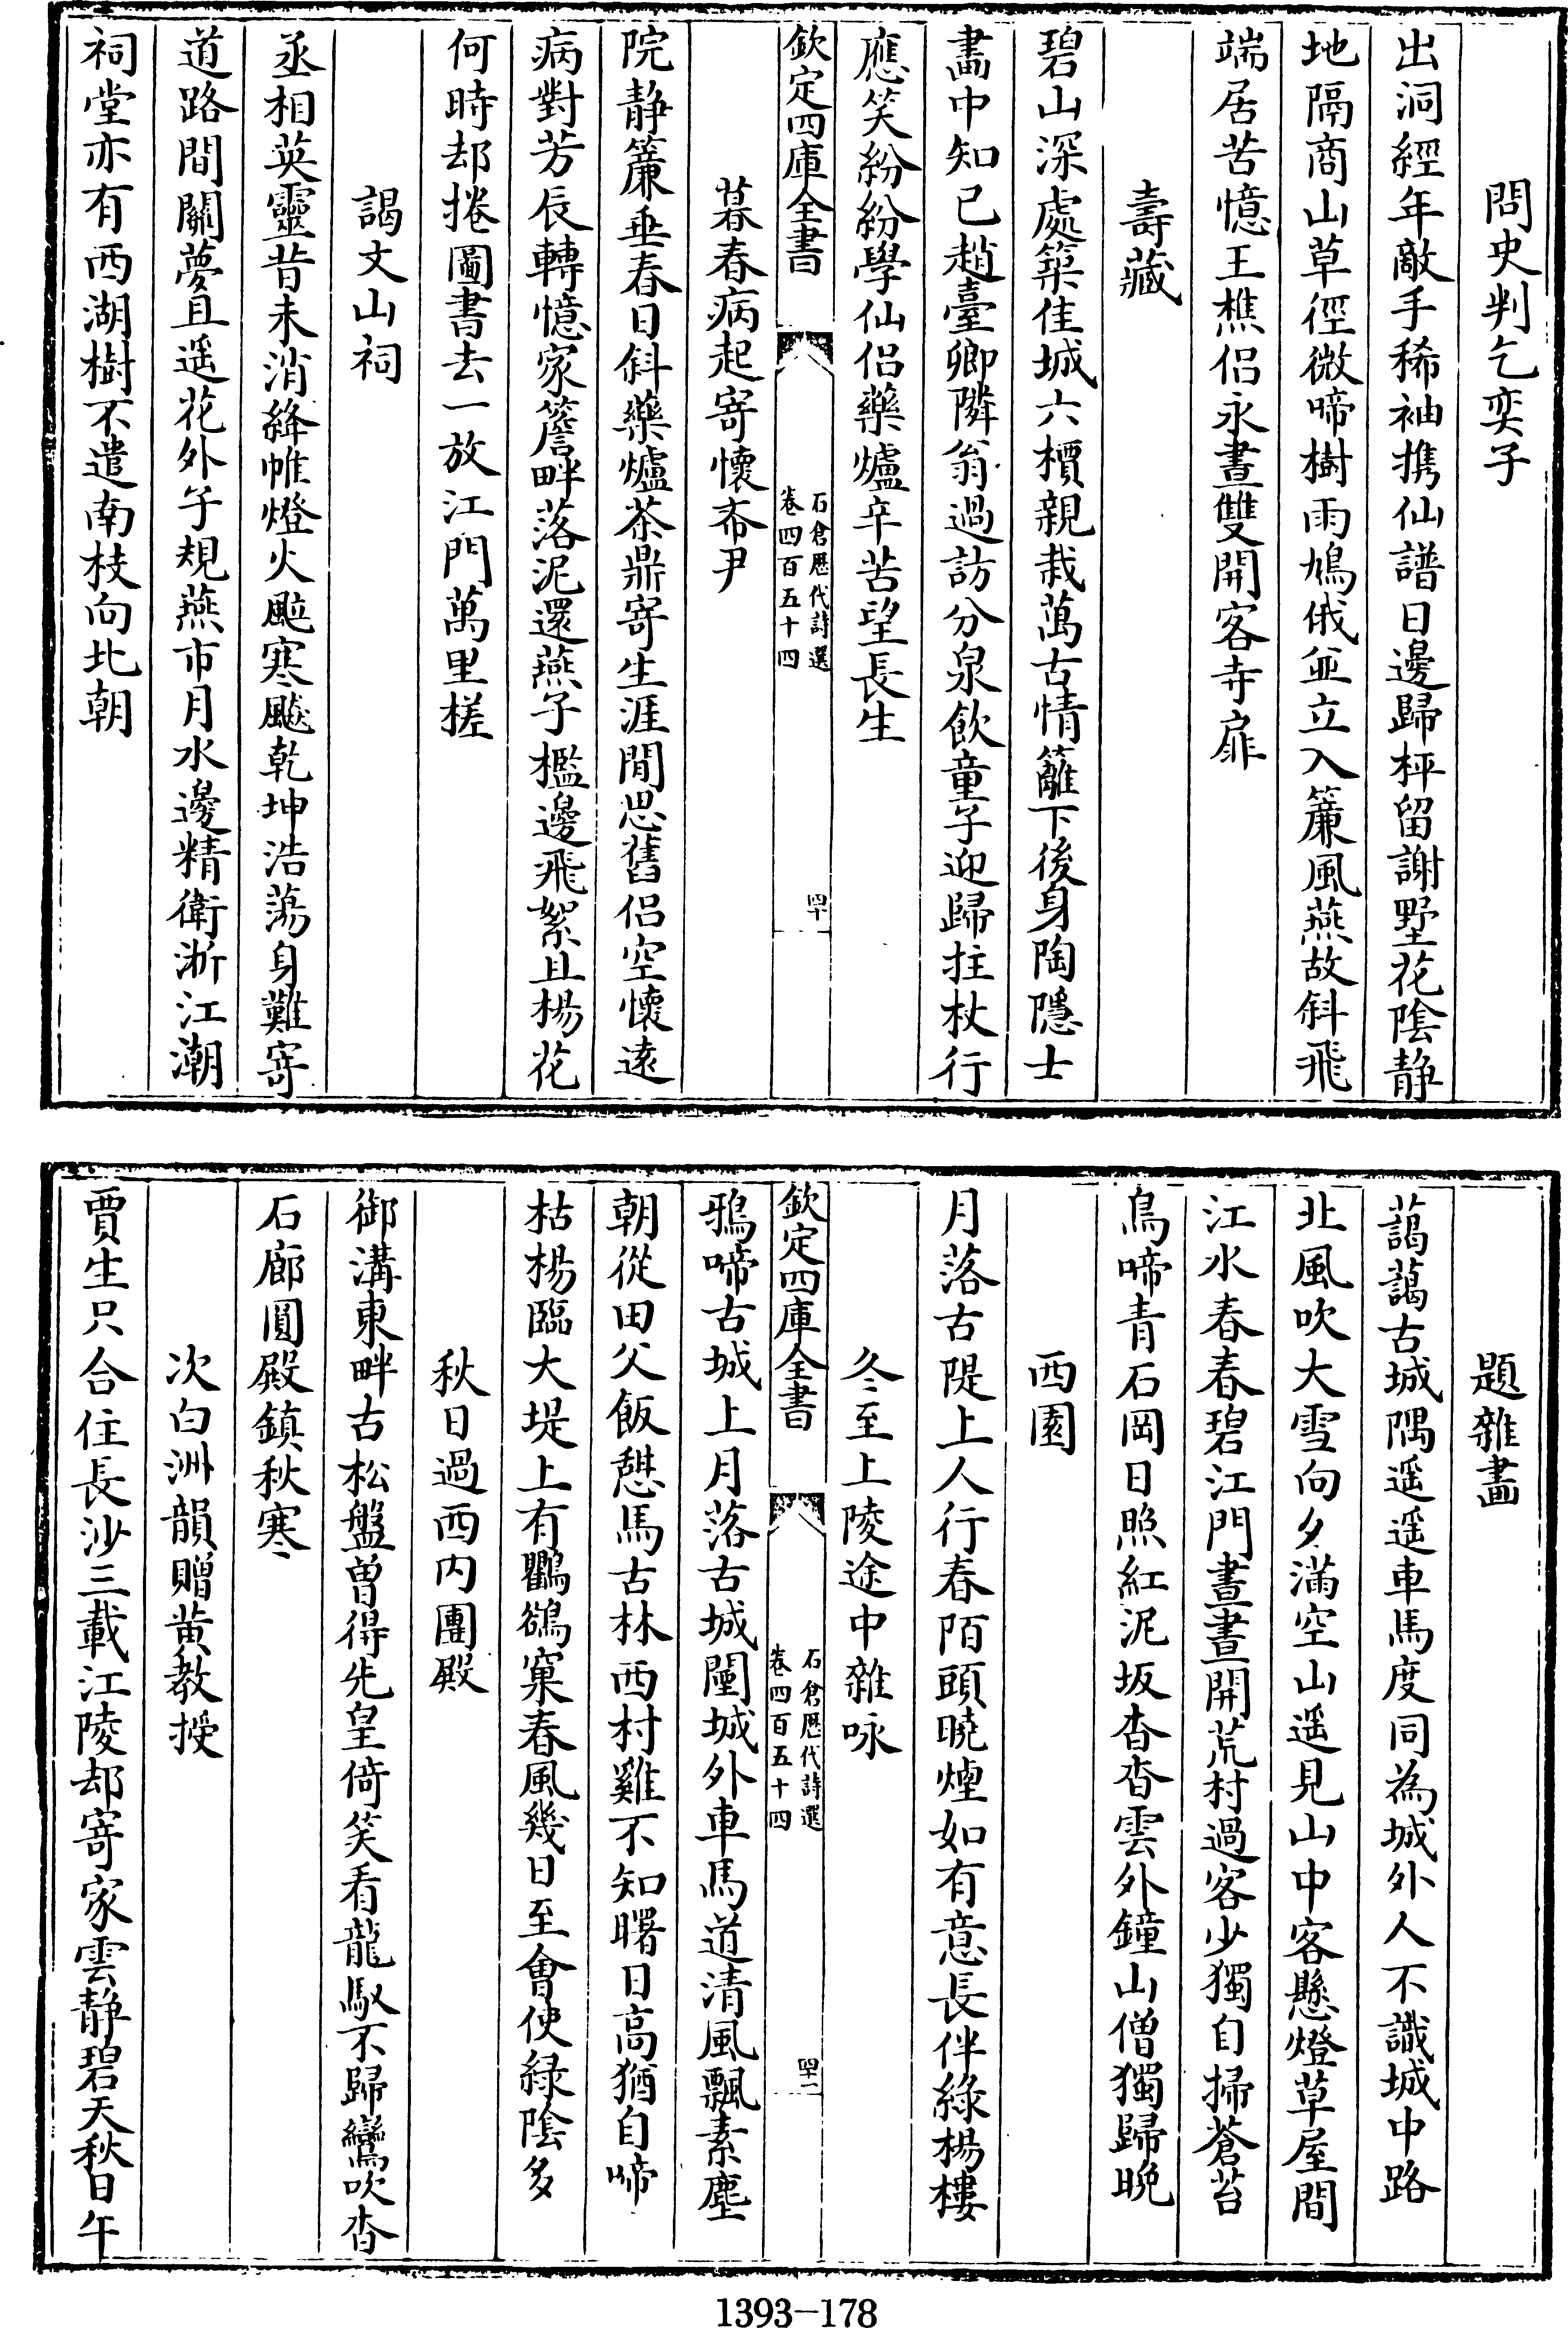 問史判乞奕子
出洞經年敵手稀袖攜仙譜日邊歸枰留謝墅花陰静
地隔商山草徑微啼樹雨鳩俄並立入簾風燕故斜飛
端居苦憶王樵侣永晝雙開客寺扉
壽藏
碧山深處築佳城六櫝親栽萬古情籬下後身陶隱士
畵中知己趙臺卿隣翁過訪分泉飲童子迎歸拄杖行
應笑紛紛學仙侣藥爐辛苦望長生
欽定四庫全書
石倉歷代詩選
卷四百五十四
四十
暮春病起寄懷希尹
院静簾垂春日斜藥爐茶鼎寄生涯閒思舊侣空懷逺
病對芳辰轉憶家簷畔落泥還燕子檻邊飛絮且楊花
何時却捲圖書去一放江門萬里槎
謁文山祠
丞相英靈昔未消絳帷燈火颭寒飈乾坤浩蕩身難寄
道路間關夢且遥花外子規燕市月水邊精衛浙江潮
祠堂亦有西湖樹不遣南枝向北朝
題雜畵
藹藹古城隅遥遥車馬度同為城外人不識城中路
北風吹大雪向夕滿空山遥見山中客懸燈草屋間
江水春春碧江門晝晝開荒村過客少獨自掃蒼苔
鳥啼青石岡日照紅泥坂杳杳雲外鐘山僧獨歸晩
西園
月落古隄上人行春陌頭曉煙如有意長伴綠楊樓
冬至上陵途中雜咏
欽定四庫全書
石倉歷代詩選
卷四百五十四
四十一
鴉啼古城上月落古城闉城外車馬道清風飄素塵
朝從田父飯憇馬古林西村雞不知曙日高猶自啼
枯楊臨大堤上有鸜鵒窠春風幾日至會使緑陰多
秋日過西内團殿
御溝東畔古松盤曽得先皇倚笑看龍馭不歸鸞吹杳
石廊圓殿鎮秋寒
次白洲韻贈黄教授
賈生只合住長沙三載江陵却寄家雲静碧天秋日午
1393-178